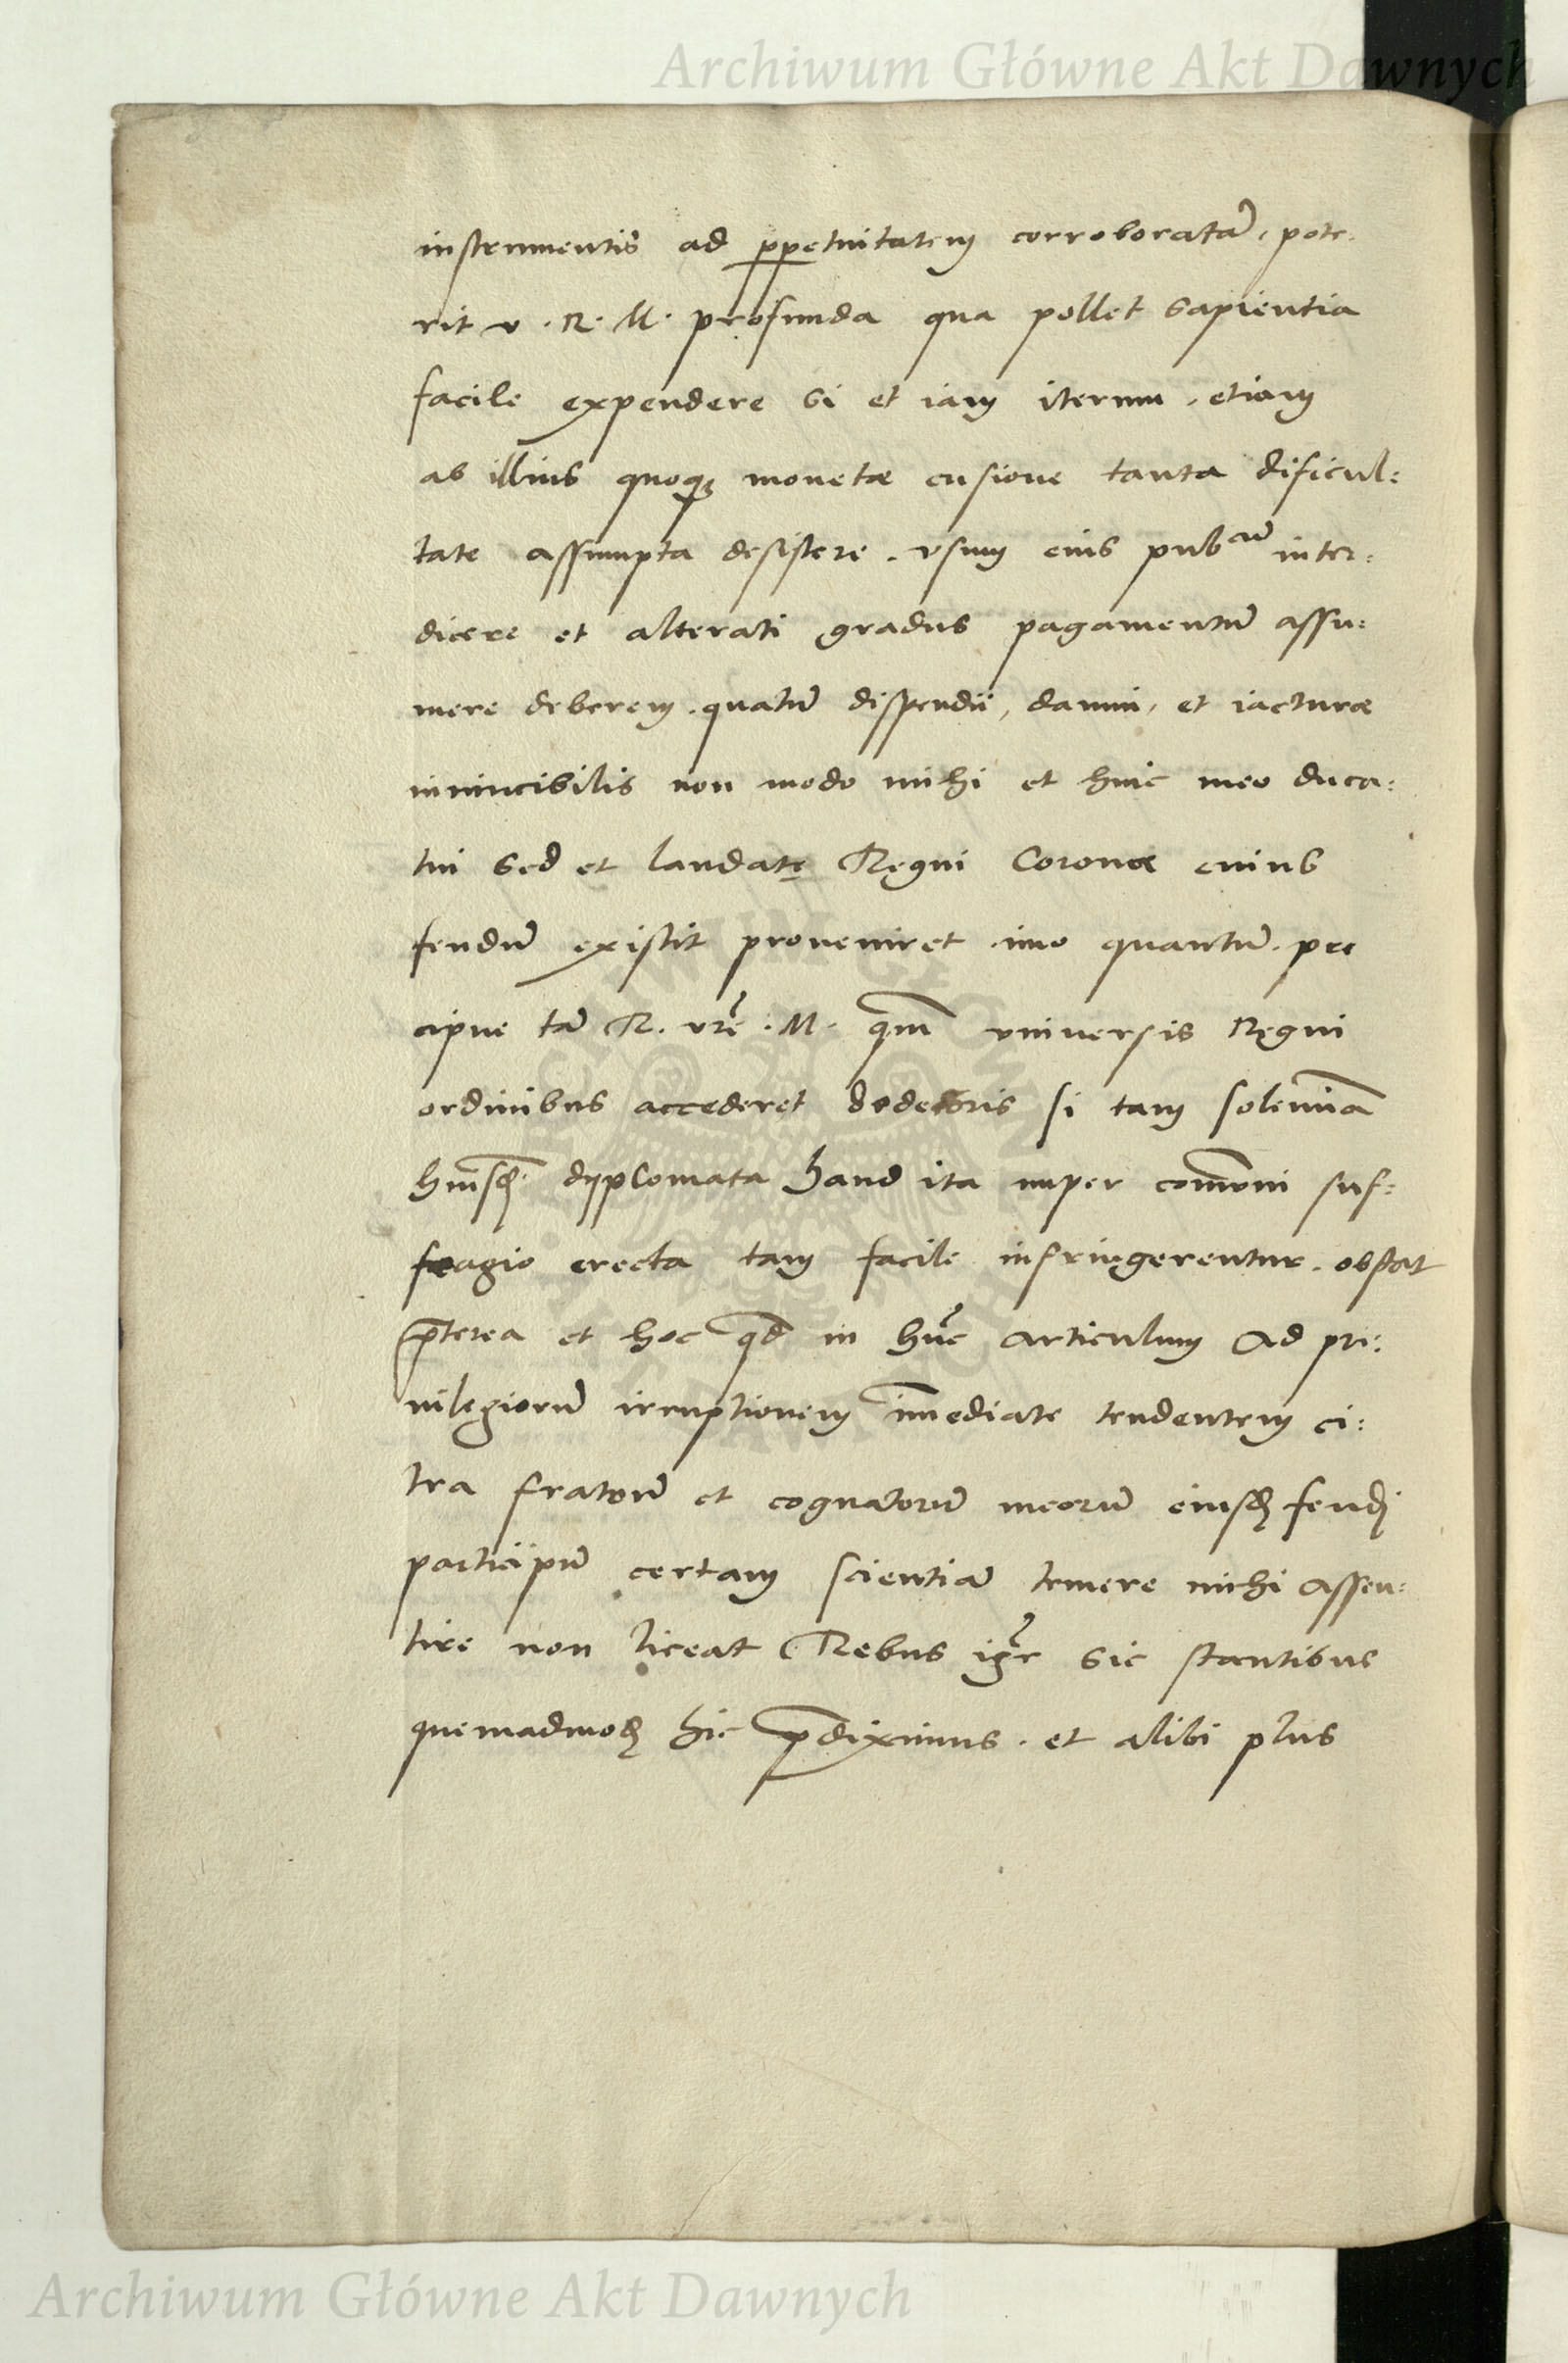 Archiwum Główne Akt Dawnych
instrumentis ad ꝑpetuitatem corroboratā, pote-
rit v. R. M. profunda qua pollet sapientia
facile expendere si et iam iterum, etiam
ab illius quoqꝫ monetæ cusione tanta dificul:
tate assumpta desistere. vsum eius pubcū inter:
dicere et alterati gradus pagamentū assu:
mere deberem. quātū dispendii, damni, et iacturæ
inuincibilis non modo mihi et huic meo duca:
tui sed et laudatę Regni Coronæ cuius
feudū existit proueniret imo quantū. pre
cipue tā R. vrē. M. qm̄ vniuersis Regni
ordinibus accederet dedecoris si tam solennia
hmōi dyplomata haud ita nuper com̄uni suf:
fragio erecta tam facile infringerentur. obstat
p̄terea et hoc qd̄ in hūc articulum ad pri:
uilegiorū irruptionem im̄ediate tendentem ci:
tra fratrū et cognatorū meorū eiusd feudi
participū certam scientiā temere mihi assen:
tire non liceat Rebus igr̄ sic stantibus
quemadmod hic p̄diximus. et alibi plus
Archiwum Główne Akt Dawnych